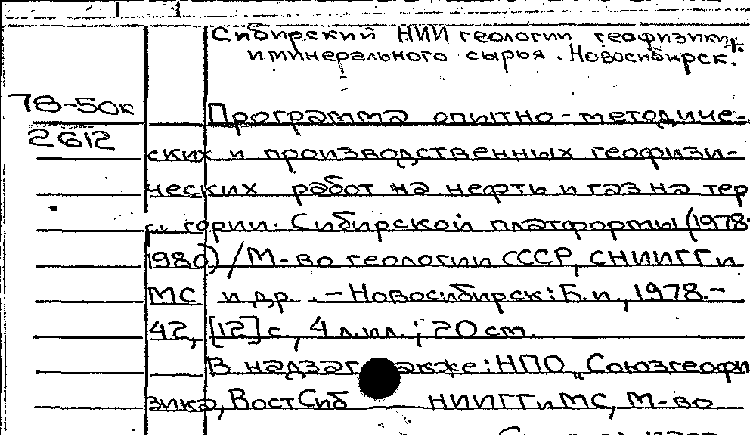 Сибирский НИИ геологии геофизики
и минерального сырья. Новосибирск.
78-50к
2612
Программа опытно-методиче-
ских и производственных геофизи-
ческих работ на нефть и газ на тер
гории. Сибирской платформы (1978-
1980) / М-во геологии СССР, СНИИГГи
МС и др. - Новосибирск: Б.и., 1978.-
42, [12] с, 4 л.ил.; 20 см.
В надзаг также: НПО „Союзгеофи
зика, ВостСиб НИИГГиМС, М-во